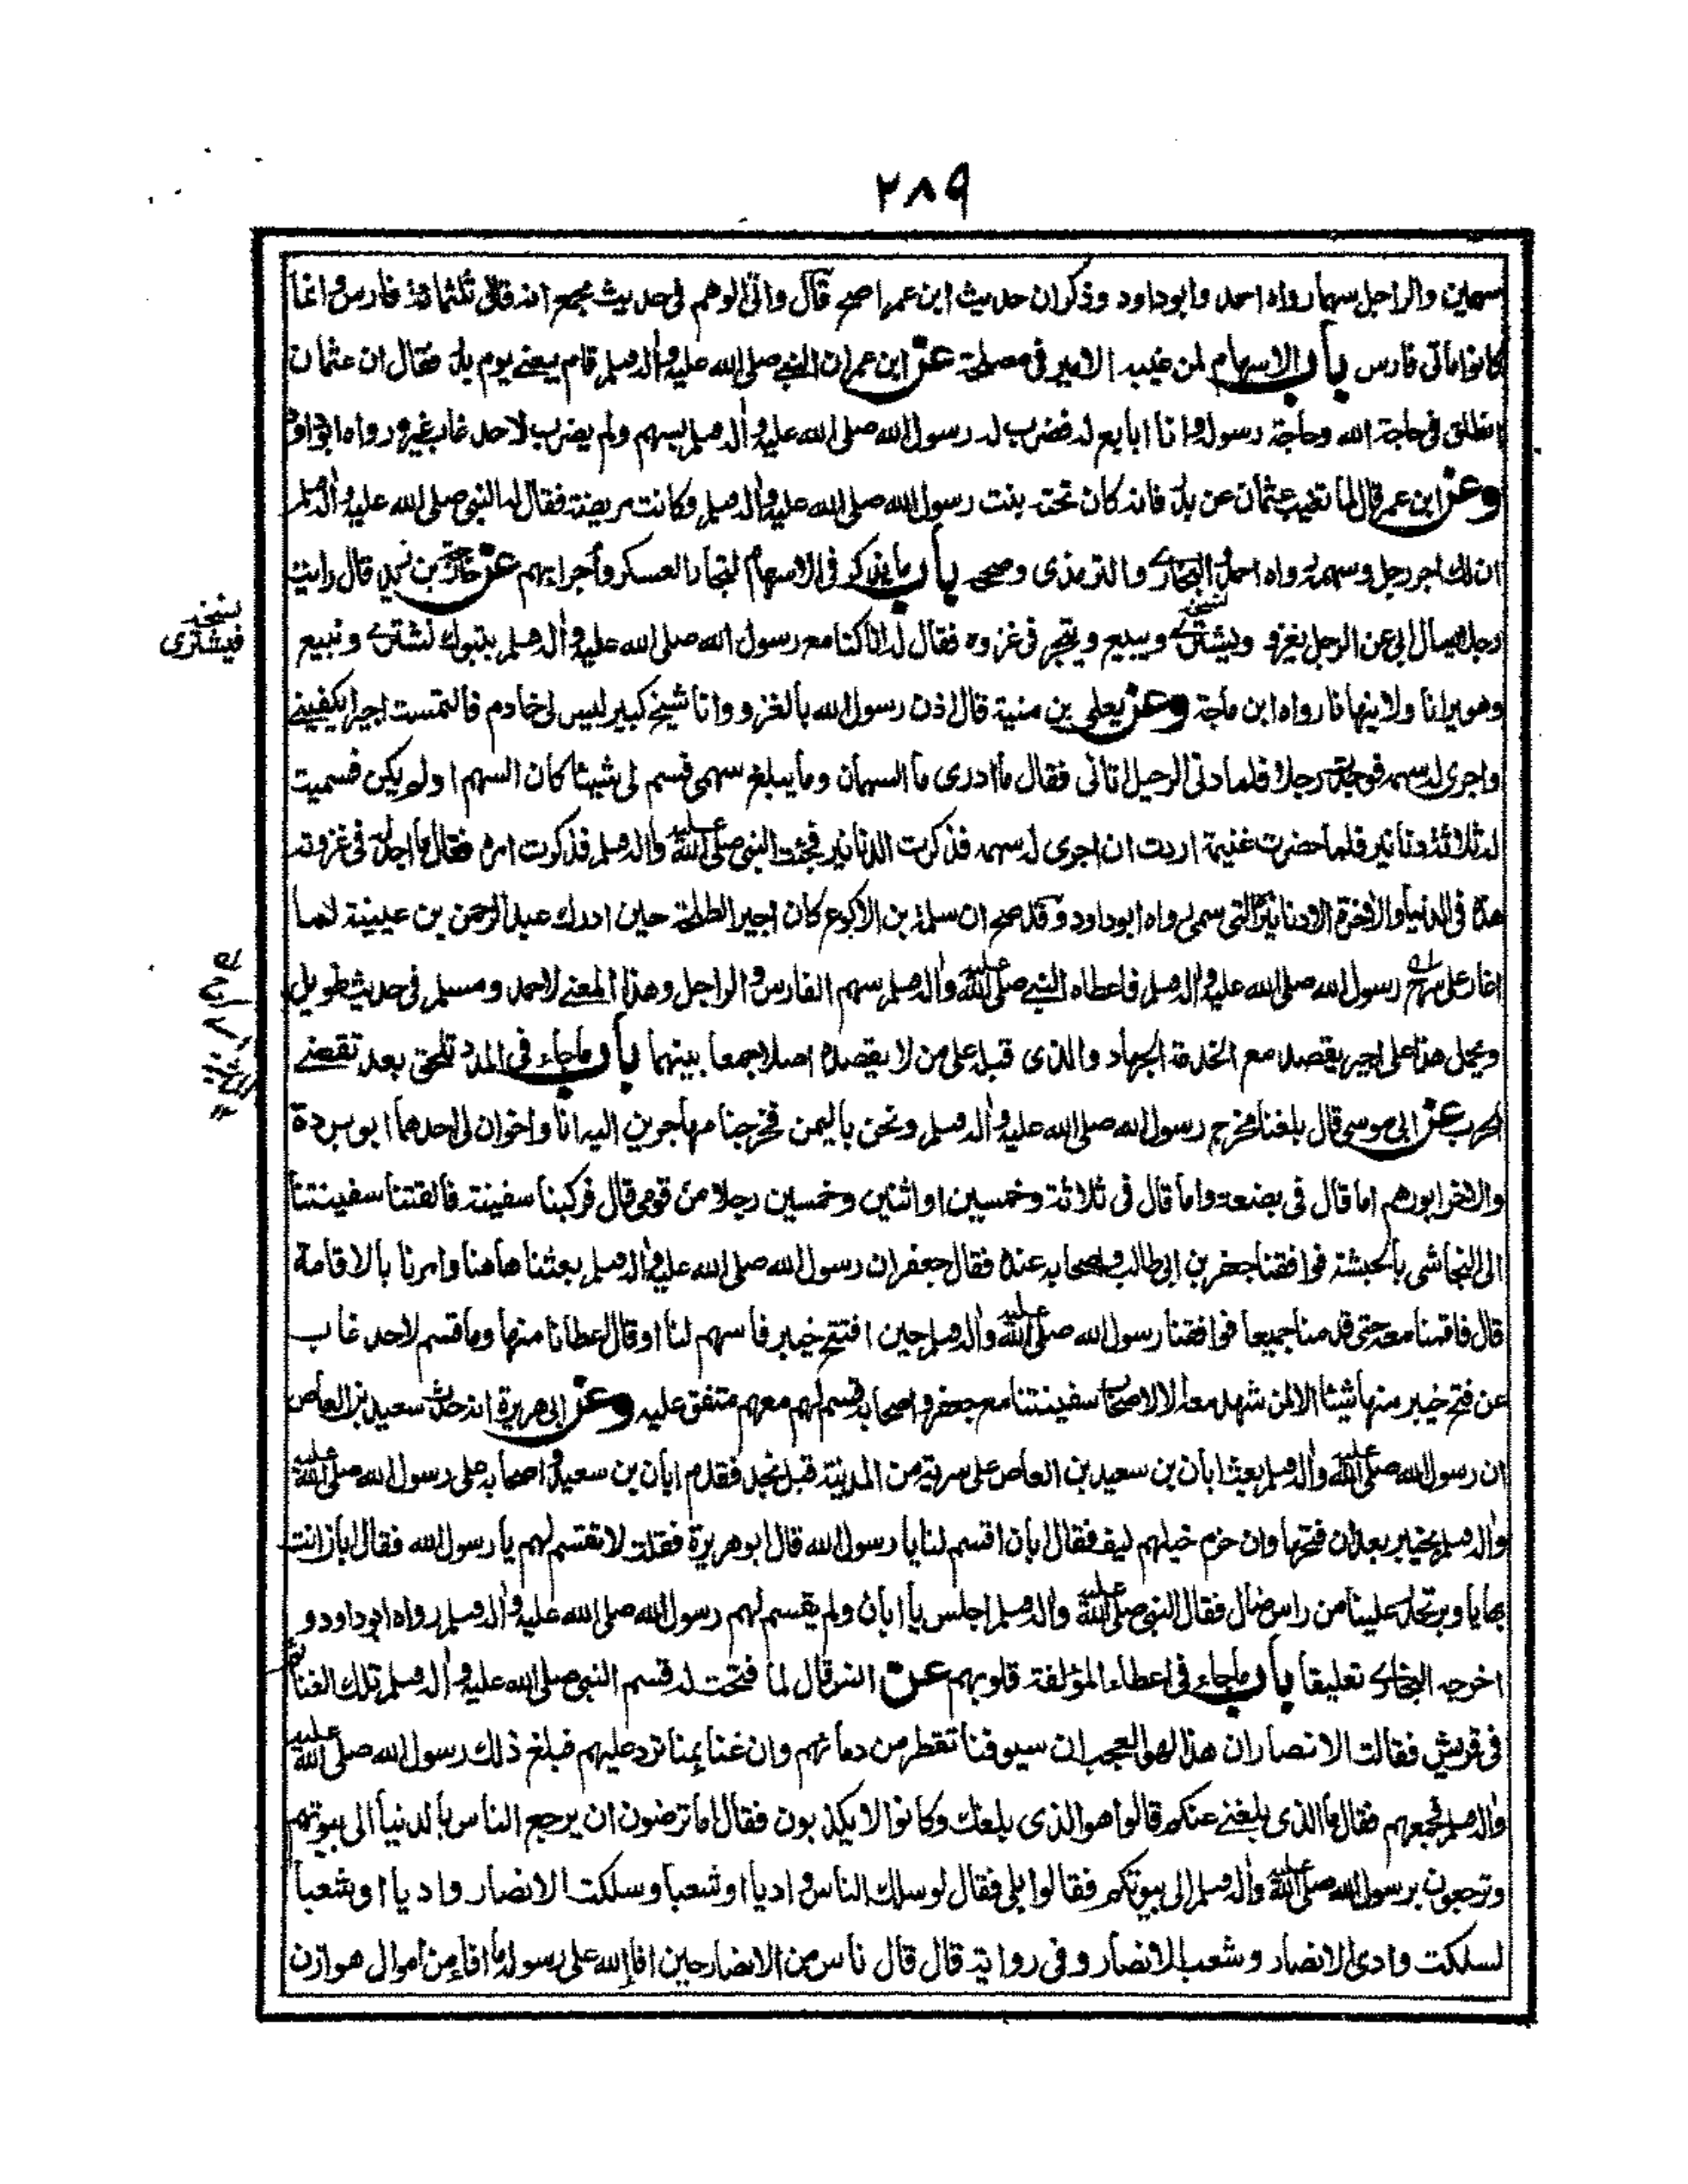 ٢٨٩
سهمين والراجل سهما رواه احمد وابوداود وذكر ان حديث ابن عمر اصح قال واتى الوهم فى حديث مجمع انه قال ثلثمائة فارس وانما
كانوا مأتى فارس باب الاسهام لمن غيبه الامير فى مصلحة عن ابن عمر ان النبى صلى الله عليه وآله وسلم قام يعنى يوم بدر فقال ان عثمان
انطلق فى حاجة الله وحاجة رسوله وانا ابايع له فضرب له رسول الله صلى الله عليه وآله وسلم بسهم ولم يضرب لاحد غاب غيره رواه ابوداود
وعن ابن عمر قال لما تغيب عثمان عن بدر فانه كان تحته بنت رسول الله صلى الله عليه وآله وسلم وكانت مريضة فقال له النبى صلى الله عليه وآله وسلم
ان لك اجر رجل وسهمه رواه احمد والبخارى والترمذى وصححه باب ما يذكر فى الاسهام لتجار العسكر وأجرائهم عن خارجة بن زيد قال رايت
رجلا سال ابى عن الرجل يغزو ويشترى ويبيع ويتجر فى غزوه فقال له انا كنا مع رسول الله صلى الله عليه وآله وسلم بتبوك نشترى ونبيع
نسخه
فيشترى
وهو يرانا ولا ينهانا رواه ابن ماجة وعن يعلى بن منية قال اذن رسول الله بالغزو وانا شيخ كبير ليس لى خادم فالتمست اجيرا يكفينى
واجرى له سهمه فوجدت رجلا فلما دنى الرحيل اتانى فقال ما ادرى ما السهمان وما يبلغ سهمى فسم لى شيئا كان السهم او لم يكن فسميت
له ثلاثة دنانير فلما حضرت غنيمة اردت ان اجرى له سهمه فذكرت الدنانير فجئت النبى صلى الله عليه وآله وسلم فذكرت امره فقال ما اجد له فى غزوته
هذه فى الدنيا والآخرة الا دنانيره التى سمى رواه ابوداود وقد صح ان سلمة بن الاكوع كان اجيرا لطلحة حين ادرك عبد الرحمن بن عيينة لما
اغار على سرح رسول الله صلى الله عليه وآله وسلم فاعطاه النبى صلى الله عليه وآله وسلم سهم الفارس والراجل وهذا المعنى لاحمد ومسلم فى حديث طويل
ويحمل هذا على اجير يقصد مع الخدمة الجهاد والذى قبله على من لا يقصده اصلا جمعا بينهما باب ماجاء فى المدد تلحق بعد تقضى
الحرب عن ابى موسى قال بلغنا مخرج رسول الله صلى الله عليه وآله وسلم ونحن باليمن فخرجنا مهاجرين اليه انا واخوان لى احدهما ابو بردة
والاخر ابورهم اما قال فى بضعة واما قال فى ثلاثة وخمسين او اثنين وخمسين رجلا من قومى قال فركبنا سفينة فالقتنا سفينتنا
الى النجاشى بالحبشة فوافقنا جعفر بن ابى طالب واصحابه عنده فقال جعفر ان رسول الله صلى الله عليه وآله وسلم بعثنا هاهنا وامرنا بالاقامة
قال فاقمنا معه حتى قدمنا جميعا فوافقنا رسول الله صلى الله عليه وآله وسلم حين افتتح خيبر فاسهم لنا او قال اعطانا منها وما قسم لاحد غاب
عن فتح خيبر منها شيئا الا لمن شهد معه الا لاصحاب سفينتنا مع جعفر واصحابه قسم لهم معهم متفق عليه وعن ابى هريرة انه حدث سعيد بن العاص
ان رسول الله صلى الله عليه وآله وسلم بعث ابان بن سعيد بن العاص على سرية من المدينة قبل نجد فقدم ابان بن سعيد واصحابه على رسول الله صلى الله عليه
وآله وسلم بخيبر بعد ان فتحها وان حزم خيلهم ليف فقال ابان اقسم لنا يا رسول الله قال ابو هريرة فقلت لا تقسم لهم يا رسول الله فقال ابان انت
بها يا وبر تحدر علينا من راس ضال فقال النبى صلى الله عليه وآله وسلم اجلس يا ابان ولم يقسم لهم رسول الله صلى الله عليه وآله وسلم رواه ابوداود و
اخرجه البخارى تعليقا باب ماجاء فى اعطاء المؤلفة قلوبهم عن انس قال لما فتحت مكة قسم النبى صلى الله عليه وآله وسلم تلك الغنائم
فى قريش فقالت الانصار ان هذا لهو العجب ان سيوفنا تقطر من دمائهم وان غنائمنا ترد عليهم فبلغ ذلك رسول الله صلى الله عليه
وآله وسلم فجمعهم فقال ما الذى بلغنى عنكم قالوا هو الذى بلغك وكانوا لا يكذبون فقال اما ترضون ان يرجع الناس بالدنيا الى بيوتهم
وترجعون برسول الله صلى الله عليه وآله وسلم الى بيوتكم فقالوا بلى فقال لو سلك الناس واديا او شعبا وسلكت الانصار واديا او شعبا
لسلكت وادى الانصار وشعب الانصار وفى رواية قال قال ناس من الانصار حين افاء الله على رسوله ما افاء من اموال هوازن